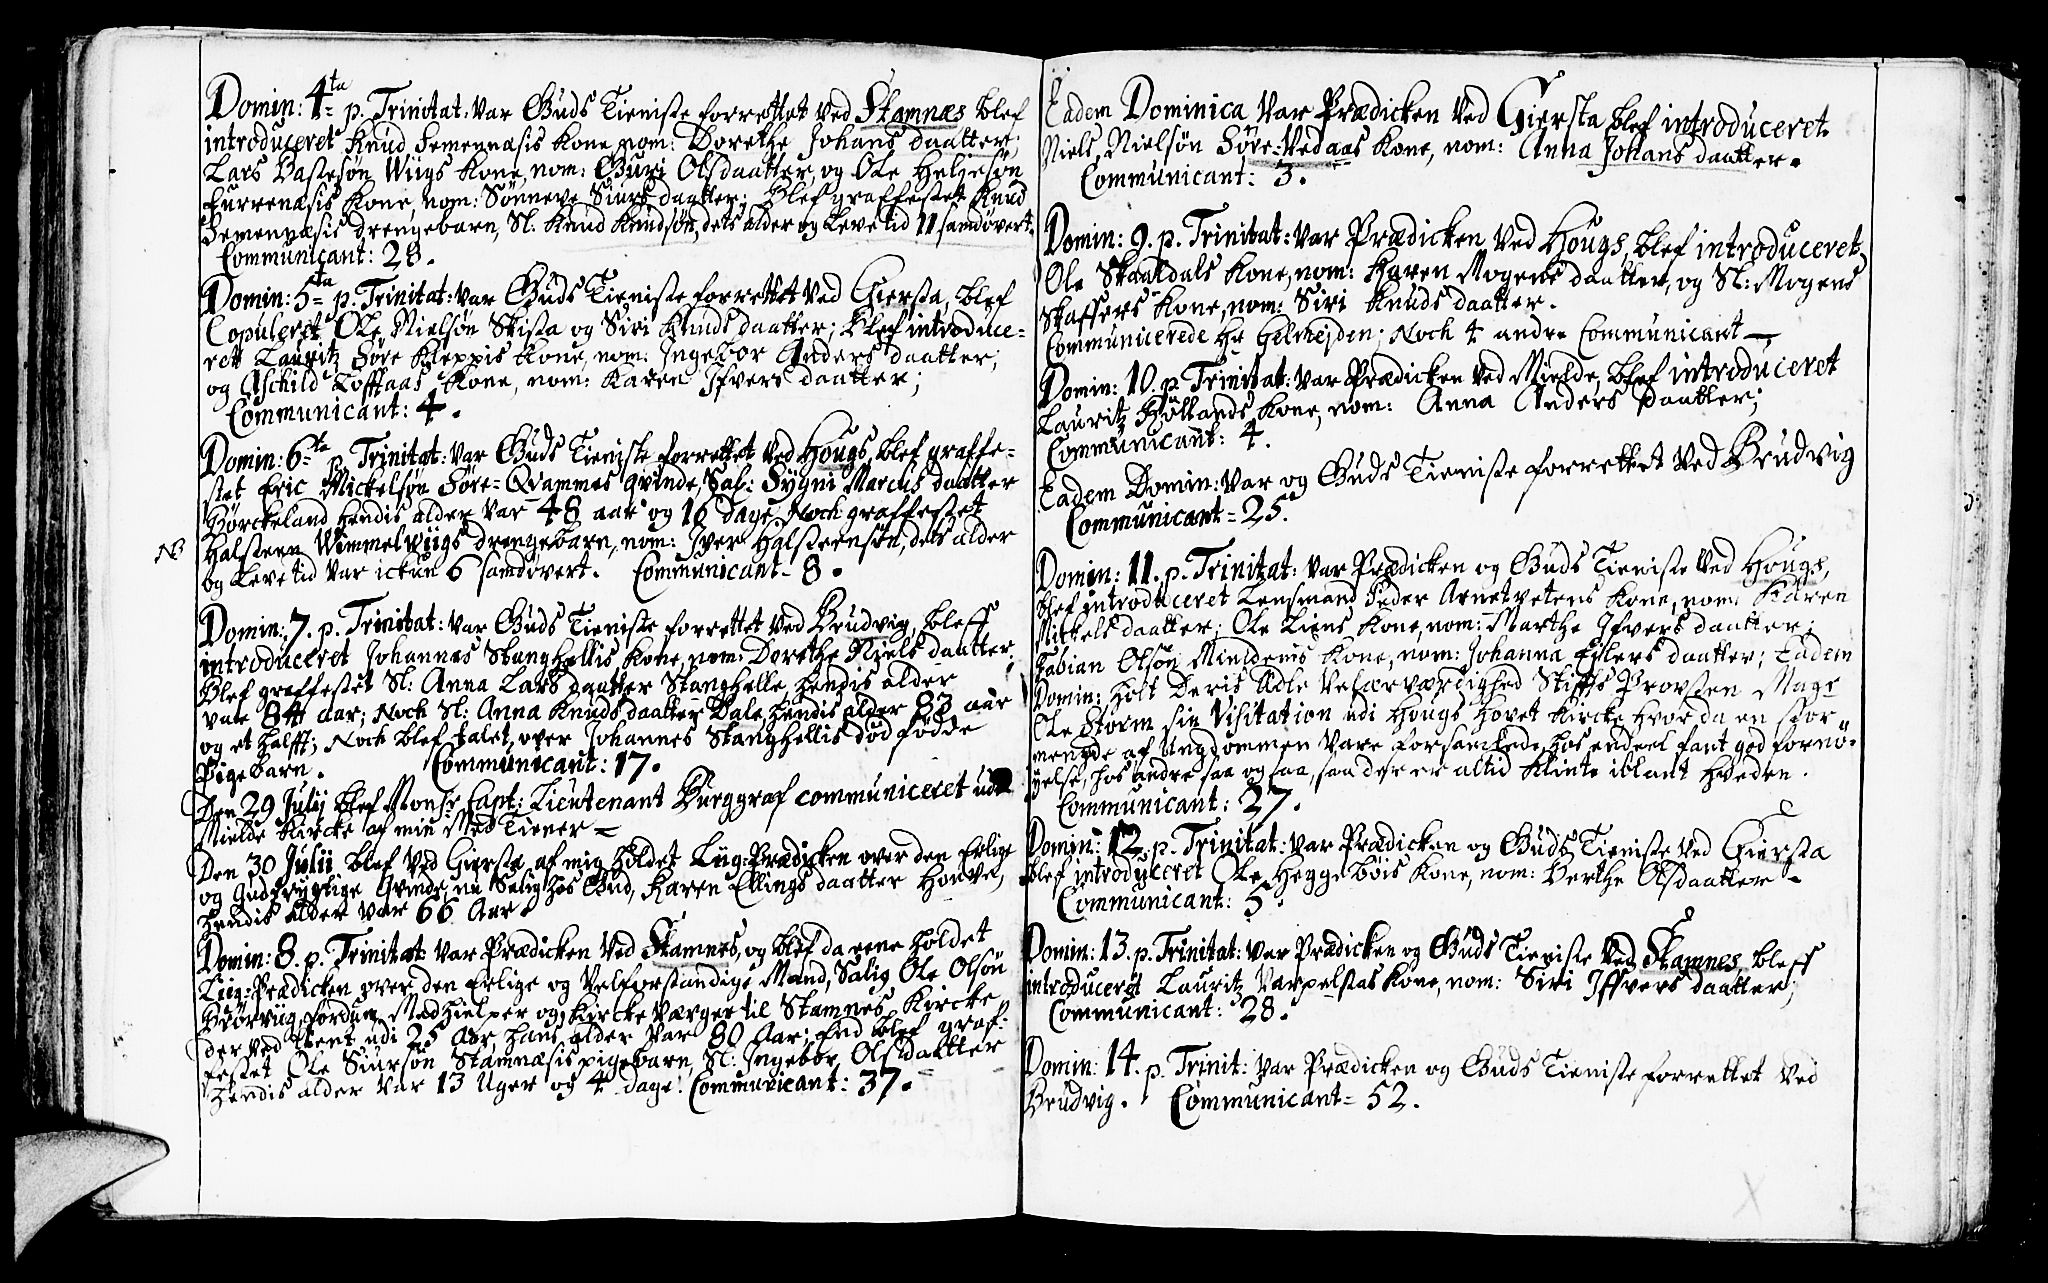 Domin: 4ta p. Trinitat: var Guds Tieniste forrettet ved Stamnæs blef
introduceret Knud Hemennæsis Kone, nom: Dorethe Johans daatter;
Lars Wiigs Kone, nom: Guri Olsdaatter, og Ole Helgesøn
Furrenæsis Kone, nom: Sønneve Siurs daatter; Blef graffestet Knud
Hemennæsis drengebarn, Sl: Knud Knudsøn, dets alder og Levetid 11 samdøvert.
Communicant: 28.
Domin: 5ta p. Trinitat: var Guds Tieniste forrettet ved Giersta, blef
Copuleret Ole Nielsøn Skista og Siri Knuds daatter; Blef introduce-
ret Lauritz Søre Kleppis Kone, nom: Ingebor Anders daatter,
og Aschild Toffaas Kone, nom: Karen Ifvers daatter;
Communicant: 4.
Domin: 6ta p. Trinitat: var Guds Tieniste forrettet ved Hougs, blef graffe-
stet Eric Mickelsøn Søre-Qvammes qvinde, Sal: Sygni Marcus daatter
Børckeland hendis alder var 48 aar og 16 dage, Noch graffestet
NB Halsteen Wimmelwiigs drengebarn, nom: Iver Halsteensøn, dets alder
og Levetid var ickun 6 samdøvert. Communicant- 8.
Domin: 7. p. Trinitat: var Guds Tieniste forrettet ved Brudvig, bleff
introduceret Johannes Stanghellis Kone, nom: Dorethe Niels daatter,
Blef graffestet Sl: Anna Lars daatter Stanghelle, hendis alder
vare 84 aar; Noch Sl: Anna Knuds daatter Dale, hendis alder 83 aar
og et halff; Noch blef talet over Johannes Stanghellis død fødde
Pigebarn. Communicant: 17.
Den 29 Julij blef Monsr Capt: Lieutenant Burggraf communiceret udi
Mielde Kircke af min Med Tiener-
Den 30 Julii blef ved Giersta af mig holdet Liig-Prædicken over den Erlige
og Gudfrygtige Qvinde, nu Salig hos Gud, Karen Ellings daatter Horve,
hendis alder var 66 Aar.
Domin: 8. p. Trinitat var Prædicken ved Stamnes, og blef da holdet
Liig-Prædicken over den Erlige og Velforstandige Mand, Salig Ole Olsøn
fordum Medhielper og Kirckeværger til Stamnes Kircke
der ved tient udi 25 Aar, hans alder var 80 Aar; End blef graf-
festet Ole Siursøn Stamnæsis pigebarn, Sl: Ingebor Olsdaatter
hendis alder var 13 Uger og 4 dage. Communicant: 37.
Eadem Dominica var Prædicken ved Giersta blef introduceret
Niels Nielsøn Søre-Vedaas Kone, nom: Anna Johans daatter.
Communicant: 3.
Domin: 9. p. Trinitat: var Prædicken ved Hougs, blef introduceret
Ole Skaaldals Kone, nom: Karen Mogens daatter, og Sl: Mogens
Skaffers Kone, nom: Siri Knuds daatter.
Communicerede Hr Gelmejden; Noch 4 andre Communicant-
Domin: 10. p. Trinitat: var Prædicken ved Mielde, blef introduceret
Lauritz Høllands Kone, nom: Anna Anders daatter;
Communicant: 4.
Eadem Domin: var og Guds Tieniste forrettet ved Brudvig
Communicant= 25.
Domin: 11. p. Trinitat: var Prædicken og Guds Tieniste ved Hougs,
blef introduceret Lensmand Peder Arnetvetens Kone, nom: Karen
Mickels daatter; Ole Liens Kone, nom: Marthe Ifvers daatter;
Fabian Olsøn Mieldens Kone, nom: Johanna Eilers daatter; Eadem
Domin: holt Deris Ædle Velærværdighed Stiffts Provsten Magr
Ole Storm sin Visitation udi Hougs hovet Kircke, hvor da en stor
mengde af Ungdommen vare forsamlede, hos endeel fant god fornø-
yelse, hos andre saa og saa, saa der er altid Klinte iblant Hveden.
Communicant: 27.
Domin: 12. p. Trinitat: var Prædicken og Guds Tieniste ved Giersta
blef introduceret Ole Heggebøis Kone, nom: Berthe Olsdaatter-
Communicant: 5.
Domin: 13. p. Trinitat: var Prædicken og Guds Tieniste ved Stamnes, bleff
introduceret Lauritz Varpelstas Kone, nom: Siri Iffvers daatter;
Communicant: 28.
Domin: 14. p. Trinit: var Prædicken og Guds Tieniste forrettet ved
Brudvig. Communicant= 52.